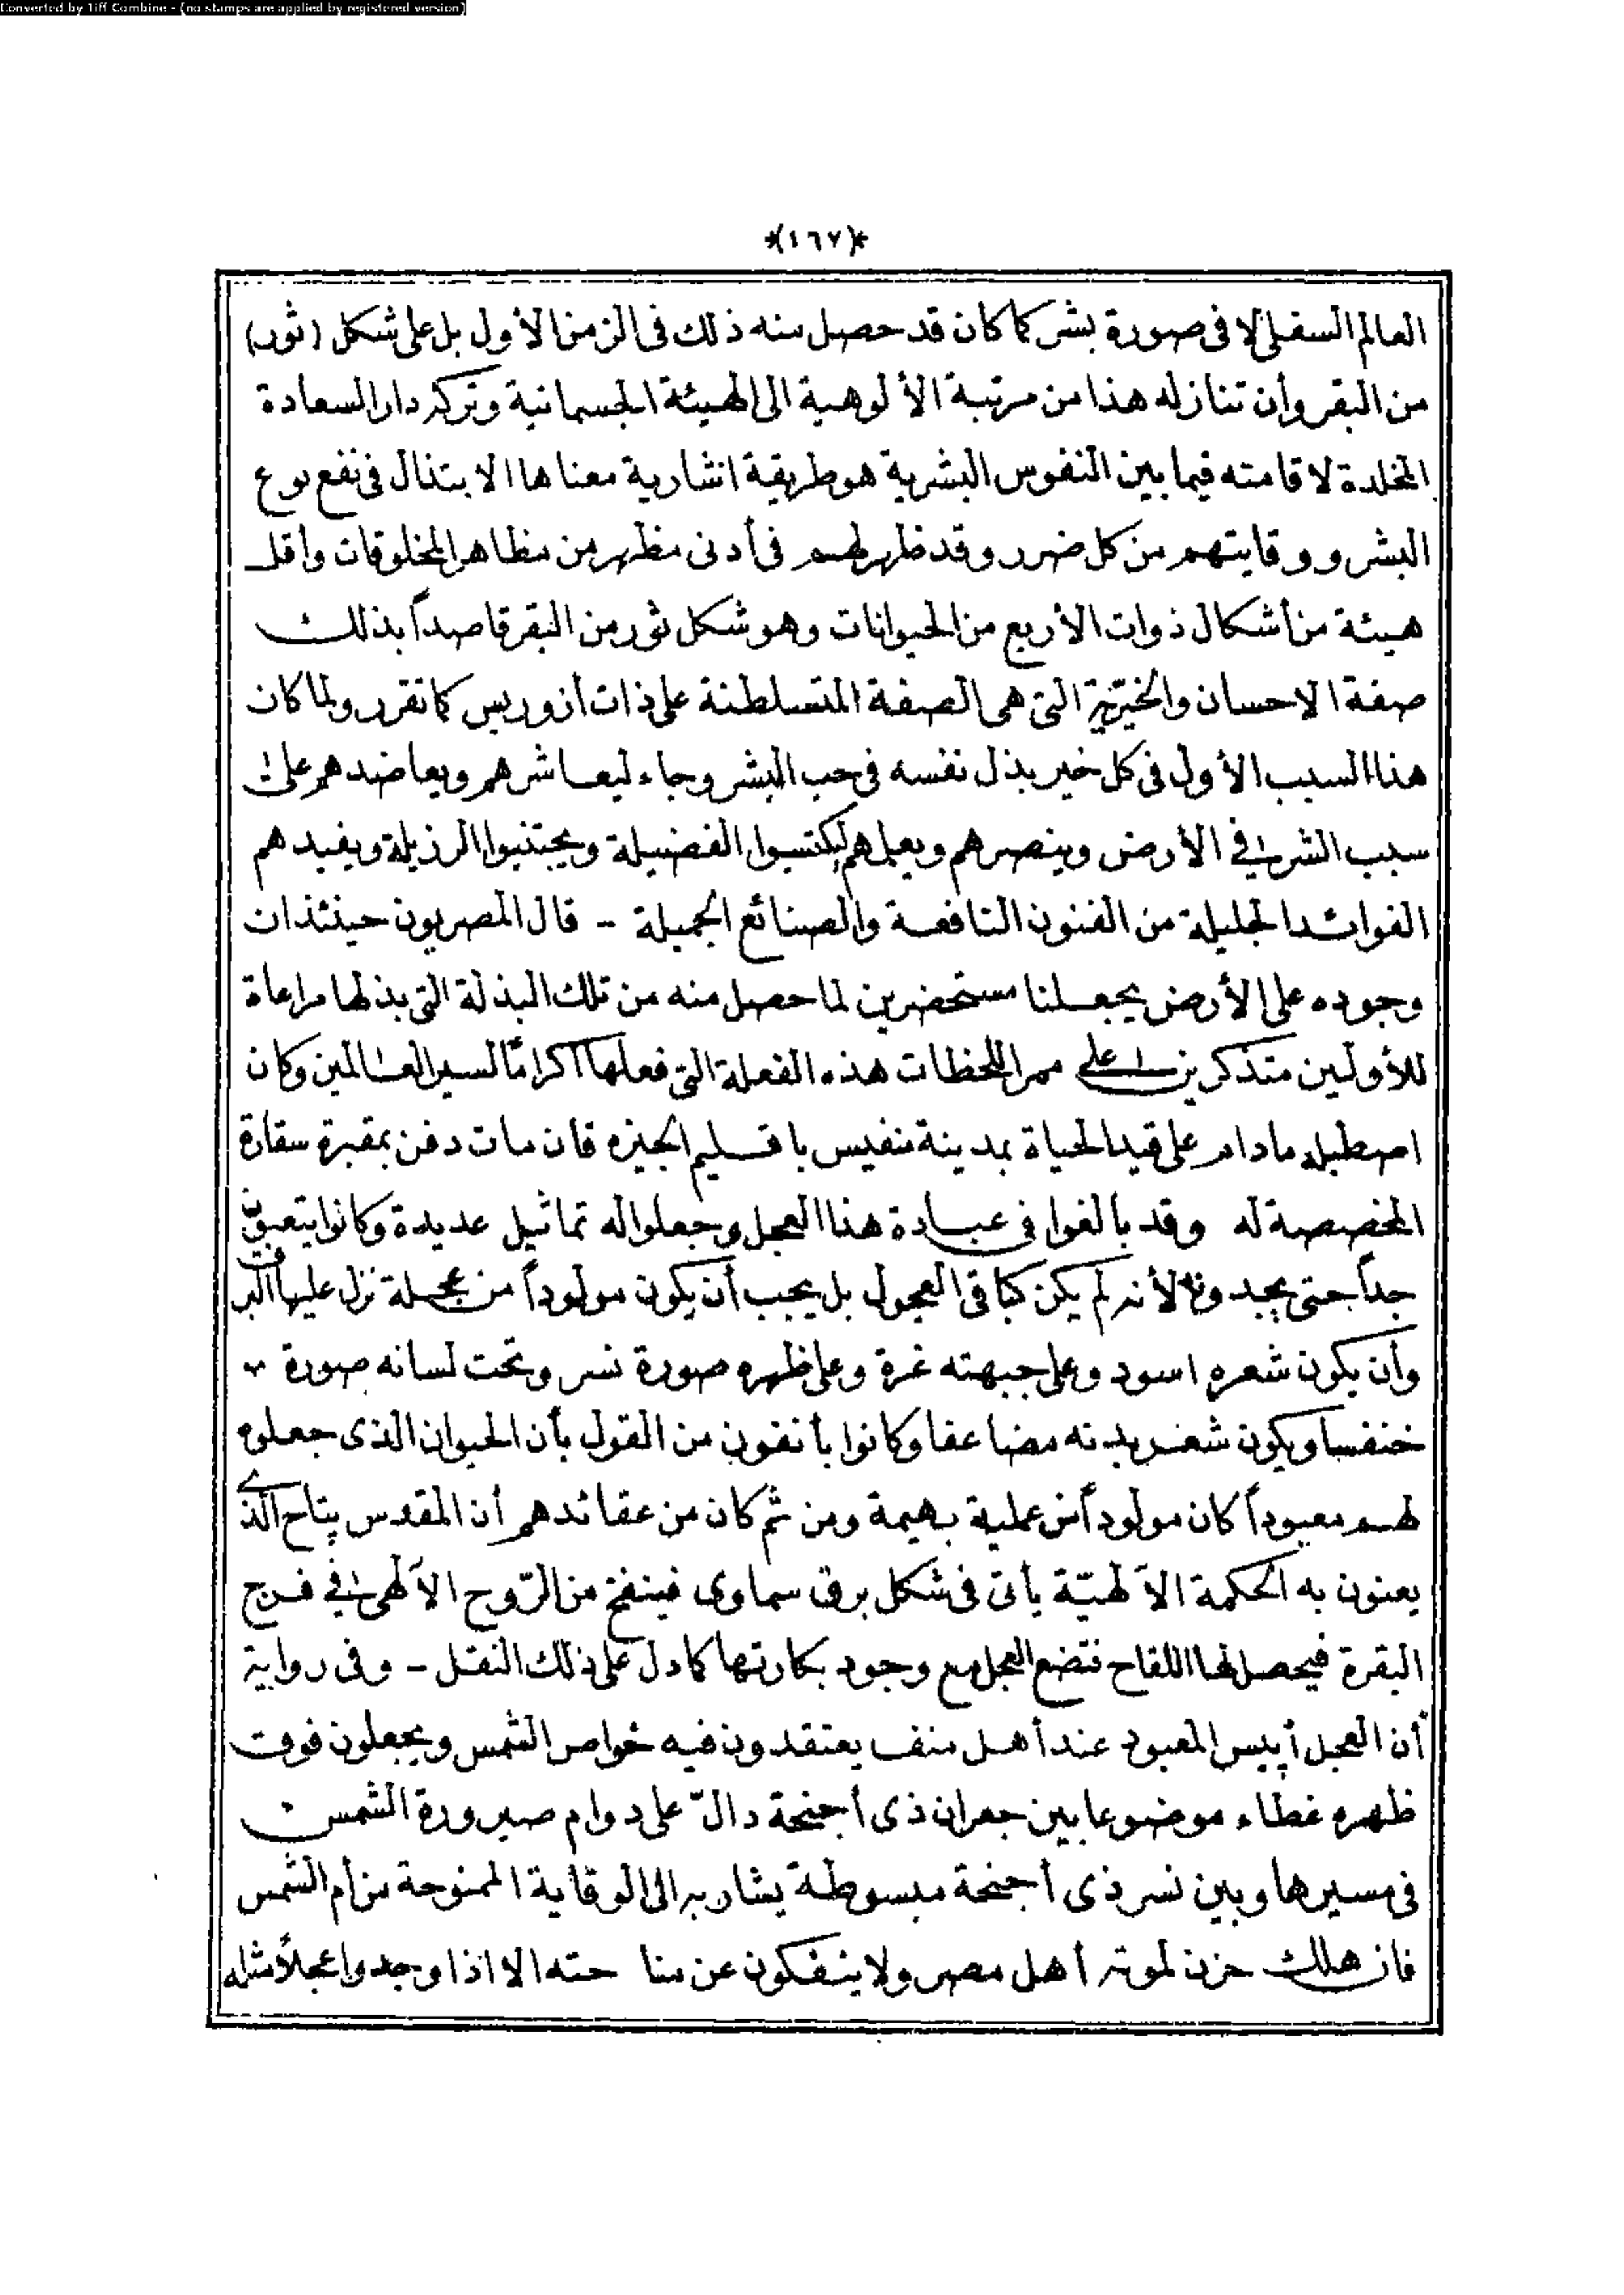 Converted by Tiff Combine - (no stamps are applied by registered version)
*(١٦٧)*
العالم السفلى لا فى صورة بشر كما كان قد حصل منه ذلك فى الزمن الأول بل على شكل (ثور)
من البقر وأن تنازله هذا من مرتبة الألوهية الى الهيئة الجسمانية وتركه دار السعادة
المخلدة لاقامته فيما بين النفوس البشرية هو طريقة اشارية معناها الابتذال فى نفع نوع
البشر ووقايتهم من كل ضرر وقد ظهر لهم فى أدنى مظهر من مظاهر المخلوقات وأقل
هيئة من أشكال ذوات الأربع من الحيوانات وهو شكل ثور من البقر قاصداً بذلك
صفة الاحسان والخيّرية التى هى الصفة المتسلطنة على ذات أزوريس كما تقرر ولما كان
هذا السبب الأول فى كل خير بذل نفسه فى حب البشر وجاء ليعاشرهم ويعاضدهم على
سبب الشر فى الأرض وينصرهم ويعلمهم ليكتسبوا الفضيلة ويجتنبوا الرزيلة ويفيدهم
الفوائد الجليلة من الفنون النافعة والصنائع الجميلة - قال المصريون حينئذ ان
وجوده على الأرض يجعلنا مستحضرين لما حصل منه من تلك البذلة التى بذلها مراعاة
للأولين متذكرين على ممر اللحظات هذه الفعلة التى فعلها اكراماً لسير العالمين وكان
اصطبله مادام على قيد الحياة بمدينة منفيس باقليم الجيزه فان مات دفن بمقبرة سقارة
المخصصة له وقد بالغوا فى عبادة هذا العجل وجعلوا له تماثيل عديدة وكانوا يتعبون
جداً حتى يجدونه لأنه لم يكن كباقى العجول بل يجب أن يكون مولوداً من عجلة نزل عليها البرق
وأن يكون شعره اسود وعلى جبهته غرة وعلى ظهره صورة نسر وتحت لسانه صورة
خنفسا ويكون شعر بدنه مضاعفا وكانوا يأنفون من القول بأن الحيوان الذى جعلوه
لهم معبوداً كان مولوداً من عملية بهيمة ومن ثم كان من عقائدهم أن المقدس پتاح الذى
يعنون به الحكمة الآلهيّة يأتى فى شكل برق سماوى فينفخ من الرّوح الآلهى فى فرج
البقرة فيحصل لها اللقاح فتضع العجل مع وجود بكارتها كما دل على ذلك النقل - وفى رواية
أن العجل أپيس المعبود عند أهل منف يعتقدون فيه خواص الشمس ويجعلون فوق
ظهره غطاء موضوعا بين جعران ذى أجنحة دالّ على دوام صيرورة الشمس
فى مسيرها وبين نسر ذى أجنحة مبسوطة يشار به الى الوقاية الممنوحة من أم الشمس
فان هلك حزن لموته أهل مصر ولا ينفكون عن مناحته الا اذا وجدوا عجلاً مثله